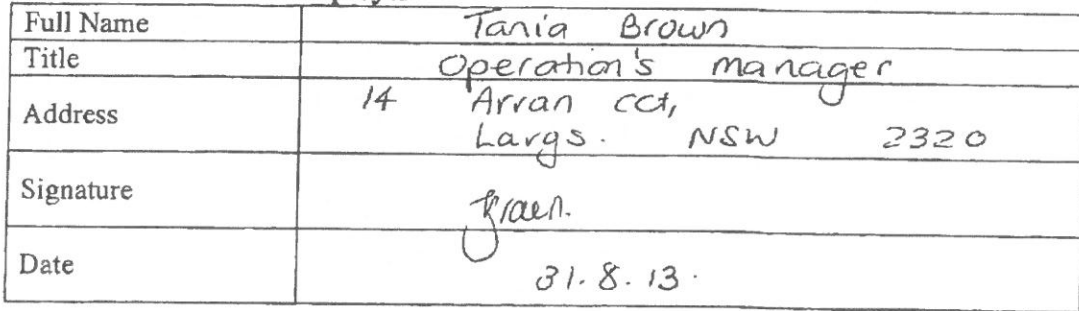 Full Name Tania Brown
Title Operation's manager
Address 14 Arran cct,
Largs. NSW 2320
Signature
Date 31.8.13.